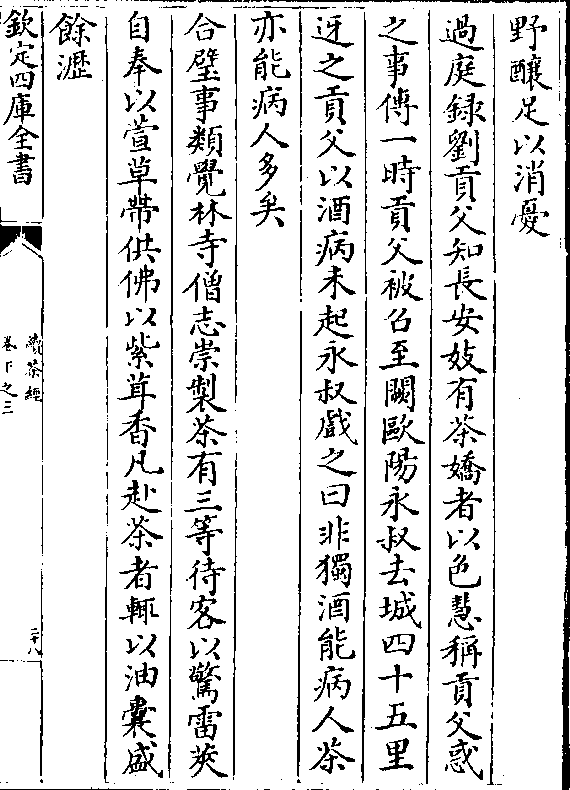 野釀足以消憂
過庭録劉貢父知長安妓有茶嬌者以色慧稱貢父惑
之事傳一時貢父被召至闕歐陽永叔去城四十五里
迓之貢父以酒病未起永叔戲之曰非獨酒能病人茶
亦能病人多矣
合璧事類覺林寺僧志崇製茶有三等待客以驚雷莢
自奉以萱草帶供佛以紫茸香凡赴茶者輒以油囊盛
餘瀝
欽定四庫全書
續茶經
卷下之三
三十八